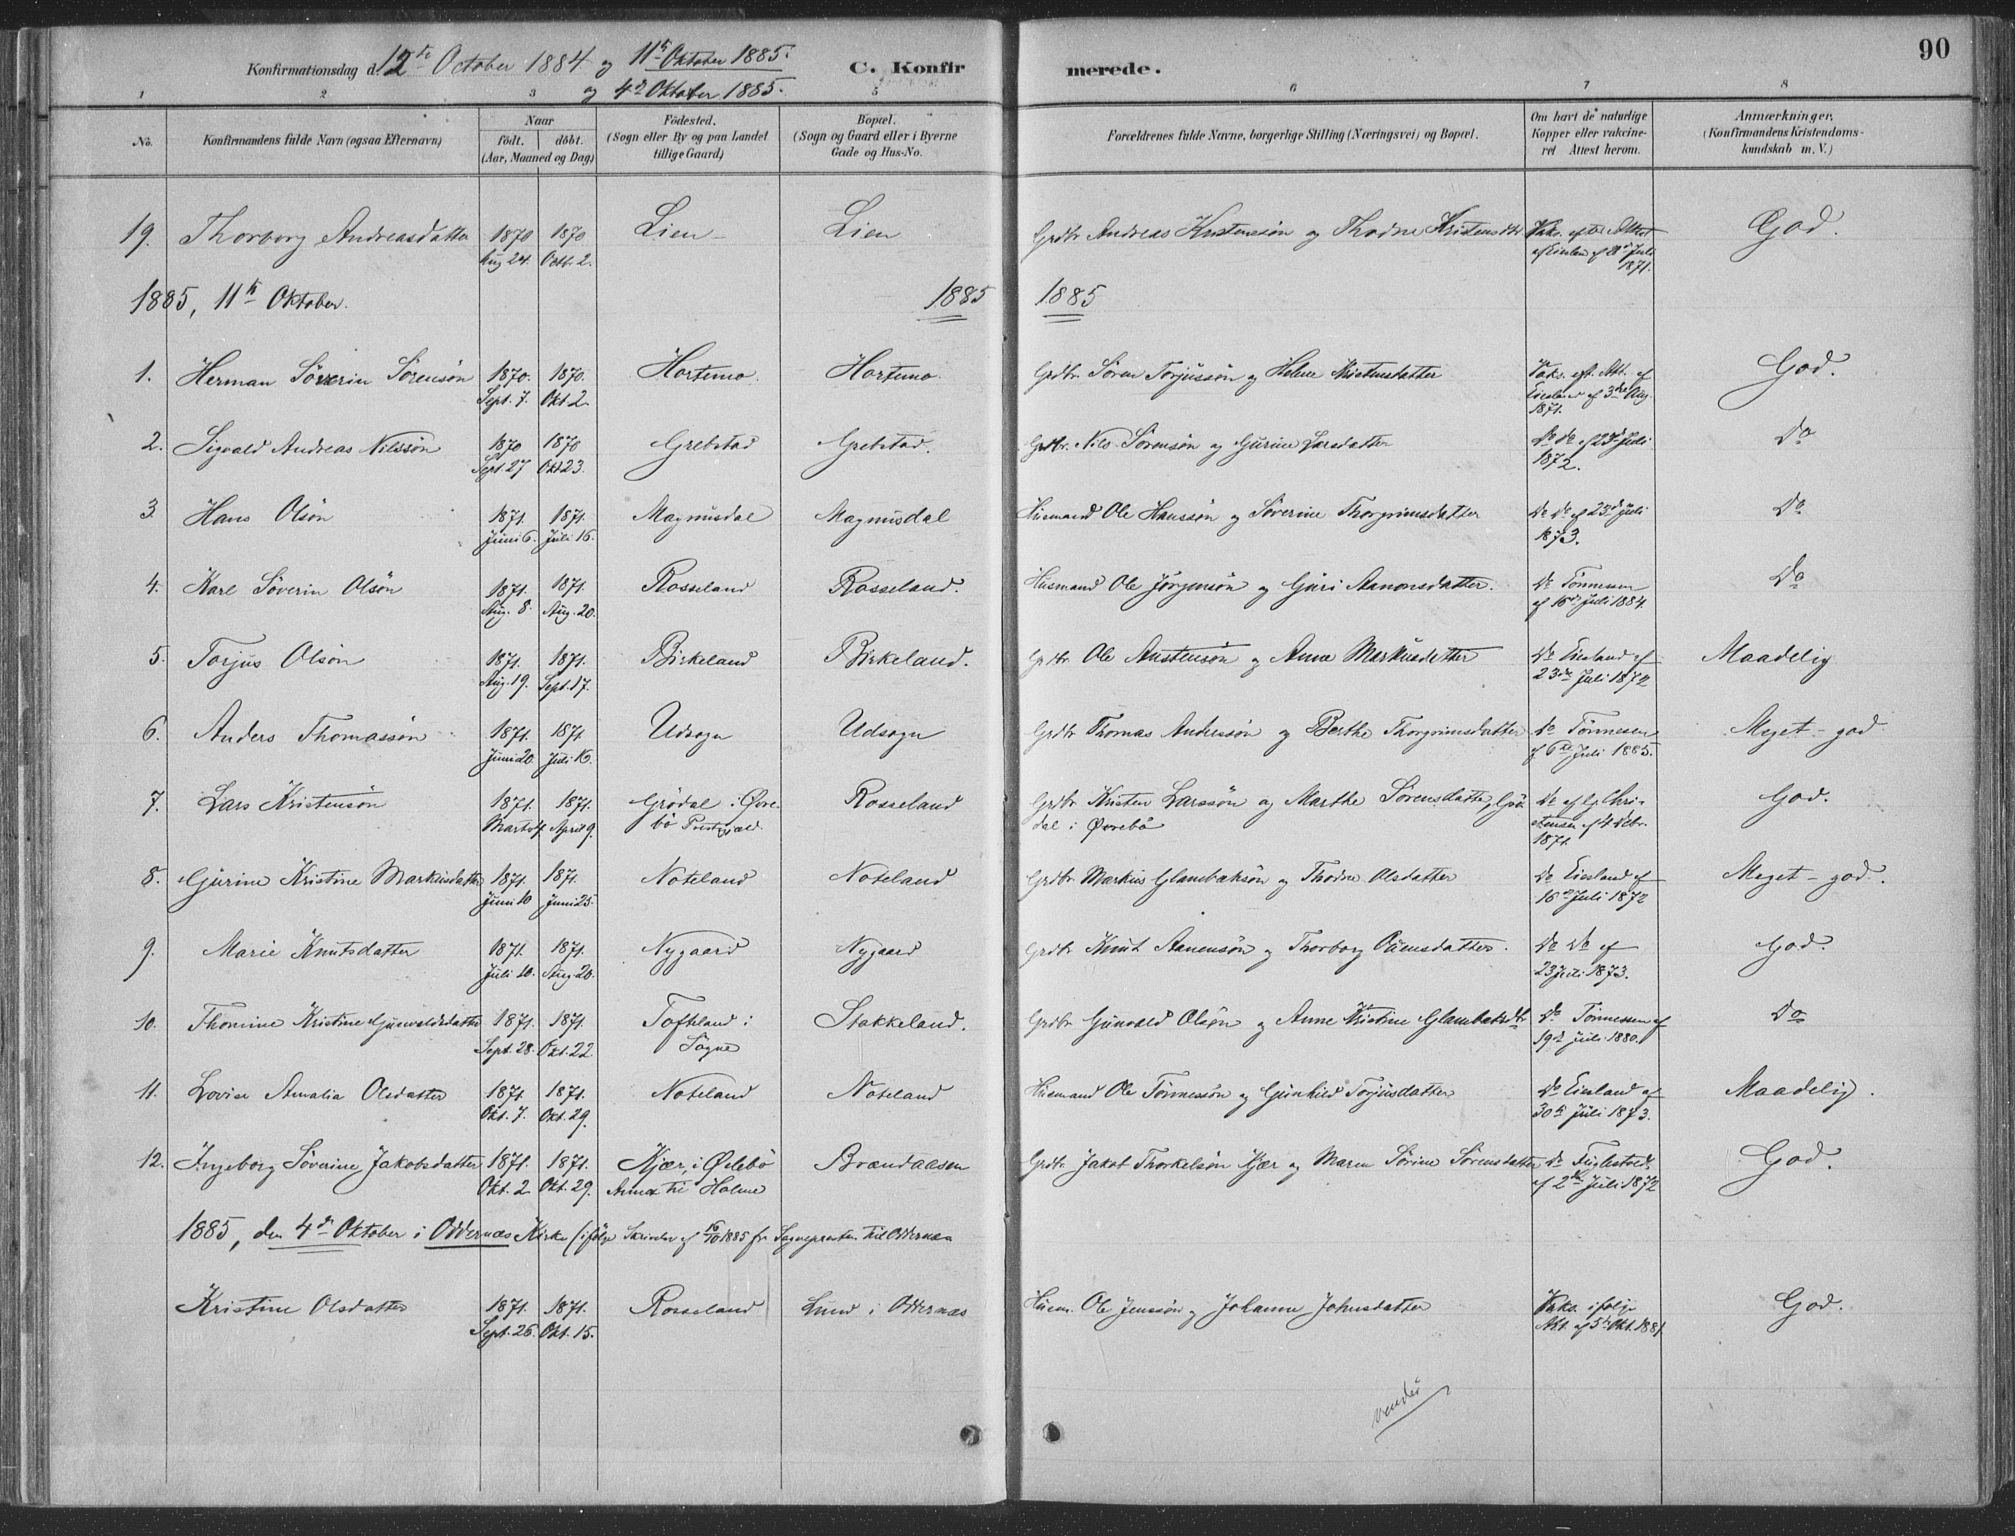 Konfirmationsdag d. 12te October 1884 og 11te Oktober 1885.
og 4de Oktober 1885.
C. Konfirmerede.
90
1 2 3 5 6 7 8
No.
Konfirmandens fulde Navn (ogsaa Efternavn)
Naar
födt. döbt.
(Aar, Maaned og Dag)
Födested.
(Sogn eller By og paa Landet tillige Gaard)
Bopæl.
(Sogn og Gaard eller i Byerne Gade og Hus-No.
Forældrenes fulde Navne, borgerlige Stilling (Næringsvei) og Bopæl.
Om havt de naturlige Kopper eller vakcineret Attest herom.
Anmærkninger.
(Konfirmandens Kristendomskundskab m. V.)
19. Thorborg Andreasdatter 1870 Aug 24. 1870 Octb. 2. Lien Lien Grdbr Andreas Kristensön og Thodne Kristensdtr Vaks. efter Attest af Eiesland af Juli 1871. God.
1885, 11te Oktober. 1885 1885
1. Herman Söverin Sörensön 1870. Sept. 7. 1870. Okt. 2. Hortemo. Hortemo Grdbr. Sören Torjussön og Helene Kristensdatter Vaks. eft. Att. af Eiesland af 3die Aug. 1871. God.
2. Sigvald Andreas Nilssön 1870 Sept. 27 1870 Okt 23. Grebstad Grebstad. Grdbr. Nils Sörensön og Gurine Larsdatter Do do af 23de Juli 1872. Do
3. Hans Olsön 1871. Juni 6. 1871. Juli 16. Magnusdal Magnusdal Husmand Ole Hanssön og Söverine Thorgrimsdatter Do do af 23de Juli 1873. Do
4. Karl Söverin Olsön 1871. Aug. 8. 1871. Aug. 20. Rosseland Rosseland. Husmand Ole Jörgensön og Guri Aanonsdatter. Do Tönnesen af 16de Juli 1884. Do
5. Torjus Olsön 1871. Aug. 19. 1871. Sept. 17. Birkeland Birkeland. Grdbr. Ole Austensön og Anne Markusdatter Do Eiesland af 23de Juli 1872 Maadelig
6. Anders Thomassön 1871. Juni 20. 1871 Juli 16. Udsogn Udsogn Grdbr Thomas Andersön og Berthe Thorgrimsdatter Do Tönnesen af 6te Juli 1885. Meget god
7. Lars Kristensön 1871. Marts 4 1871. April 9. Grödal i Övrebö Præstegjæld. Rosseland Grdbr Kristen Larssön og Marthe Sörensdatter, Grödal i Övrebö Do af G. Christensen af 4 Debr. 1871. God.
8. Gurine Kristine Markusdatter 1871. Juni 10 1871. Juni 25. Noteland Noteland Grdbr Markus Glambæksön og Thodne Olsdatter Do Eiesland af 16de Juli 1872 Meget god.
9. Marie Knutsdatter 1871. Juli 10. 1871. Aug 20. Nygaard Nygaard Grdbr Knut Aanensön og Thorborg Daneisdatter. Do Do af 23 Juli 1873. God.
10. Thomine Kristine Gunvaldsdatter 1871. Sept. 28. 1871. Okt. 22 Tofteland i Sögne Stokkeland. Grdbr Gunvald Olsön og Anne Kristine Glambæksdtr Do Tönnessen af 19de Juli 1880. Do
11. Lovise Amalia Olsdatter 1871 Okt. 7. 1871. Okt. 29. Noteland Noteland Husmand Ole Tönnessön og Gunhild Torjusdatter Do Eiesland af 30te Juli 1873. Maadelig.
12. Ingeborg Söverine Jakobsdatter 1871. Okt. 2 1871. Okt. 29. Kjær, i Öslebö Annex til Holme Brændaasen Grdbr Jakob Thorkelsön Kjær og Maren Sörine Sörensdatter Do af 2den Juli 1872 God.
1885, den 4de Oktober i Oddernæs Kirke (ifölge Skrivelse af 16/10 1885 fra Sognepresten til Oddernæs
Kristine Olsdatter 1871. Sept. 26. 1871. Okt. 15. Rosseland Lund i Oddernæs Husm. Ole Jenssön og Johanne Johnsdatter Vaks. ifölge Att. af 5te Okt. 1881 God.
vender